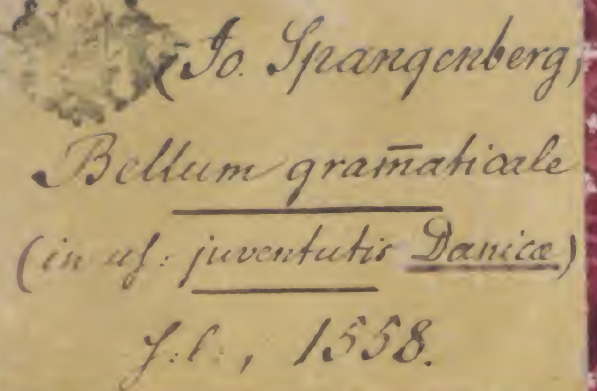 (Jo. Spangenberg,
Bellum gram̄aticale
(in uſ: juventutis Danicæ)
ſ:l:, 1558.